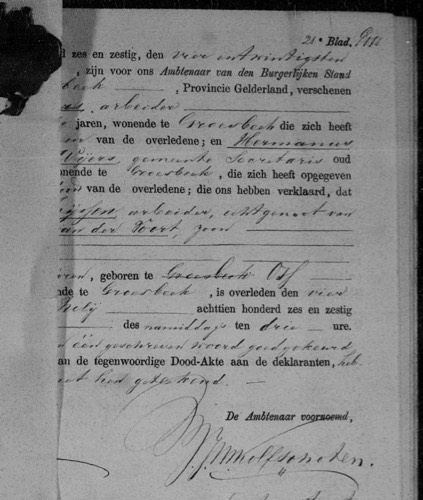 21e Blad.
d zes en zestig, den vier en twintigsten
, zijn voor ons Ambtenaar van den Burgerlijken Stand
beek , Provincie Gelderland, verschenen
arbeider
jaren, wonende te Groesbeek die zich heeft
van de overledene; en Hermanus
Wijers gemeente Secretaris oud
onende te Groesbeek, die zich heeft opgegeven
van de overledene; die ons hebben verklaard, dat
arbeider, echtgenoot van
van der Voort, zoon
, geboren te Groesbeek Oss
de te Groesbeek, is overleden den vier
achttien honderd zes en zestig
des namiddags ten drie ure.
een geschreven woord goedgekeurd
an de tegenwoordige Dood-Akte aan de deklaranten, heb
met hen geteekend.
De Ambtenaar voornoemd,